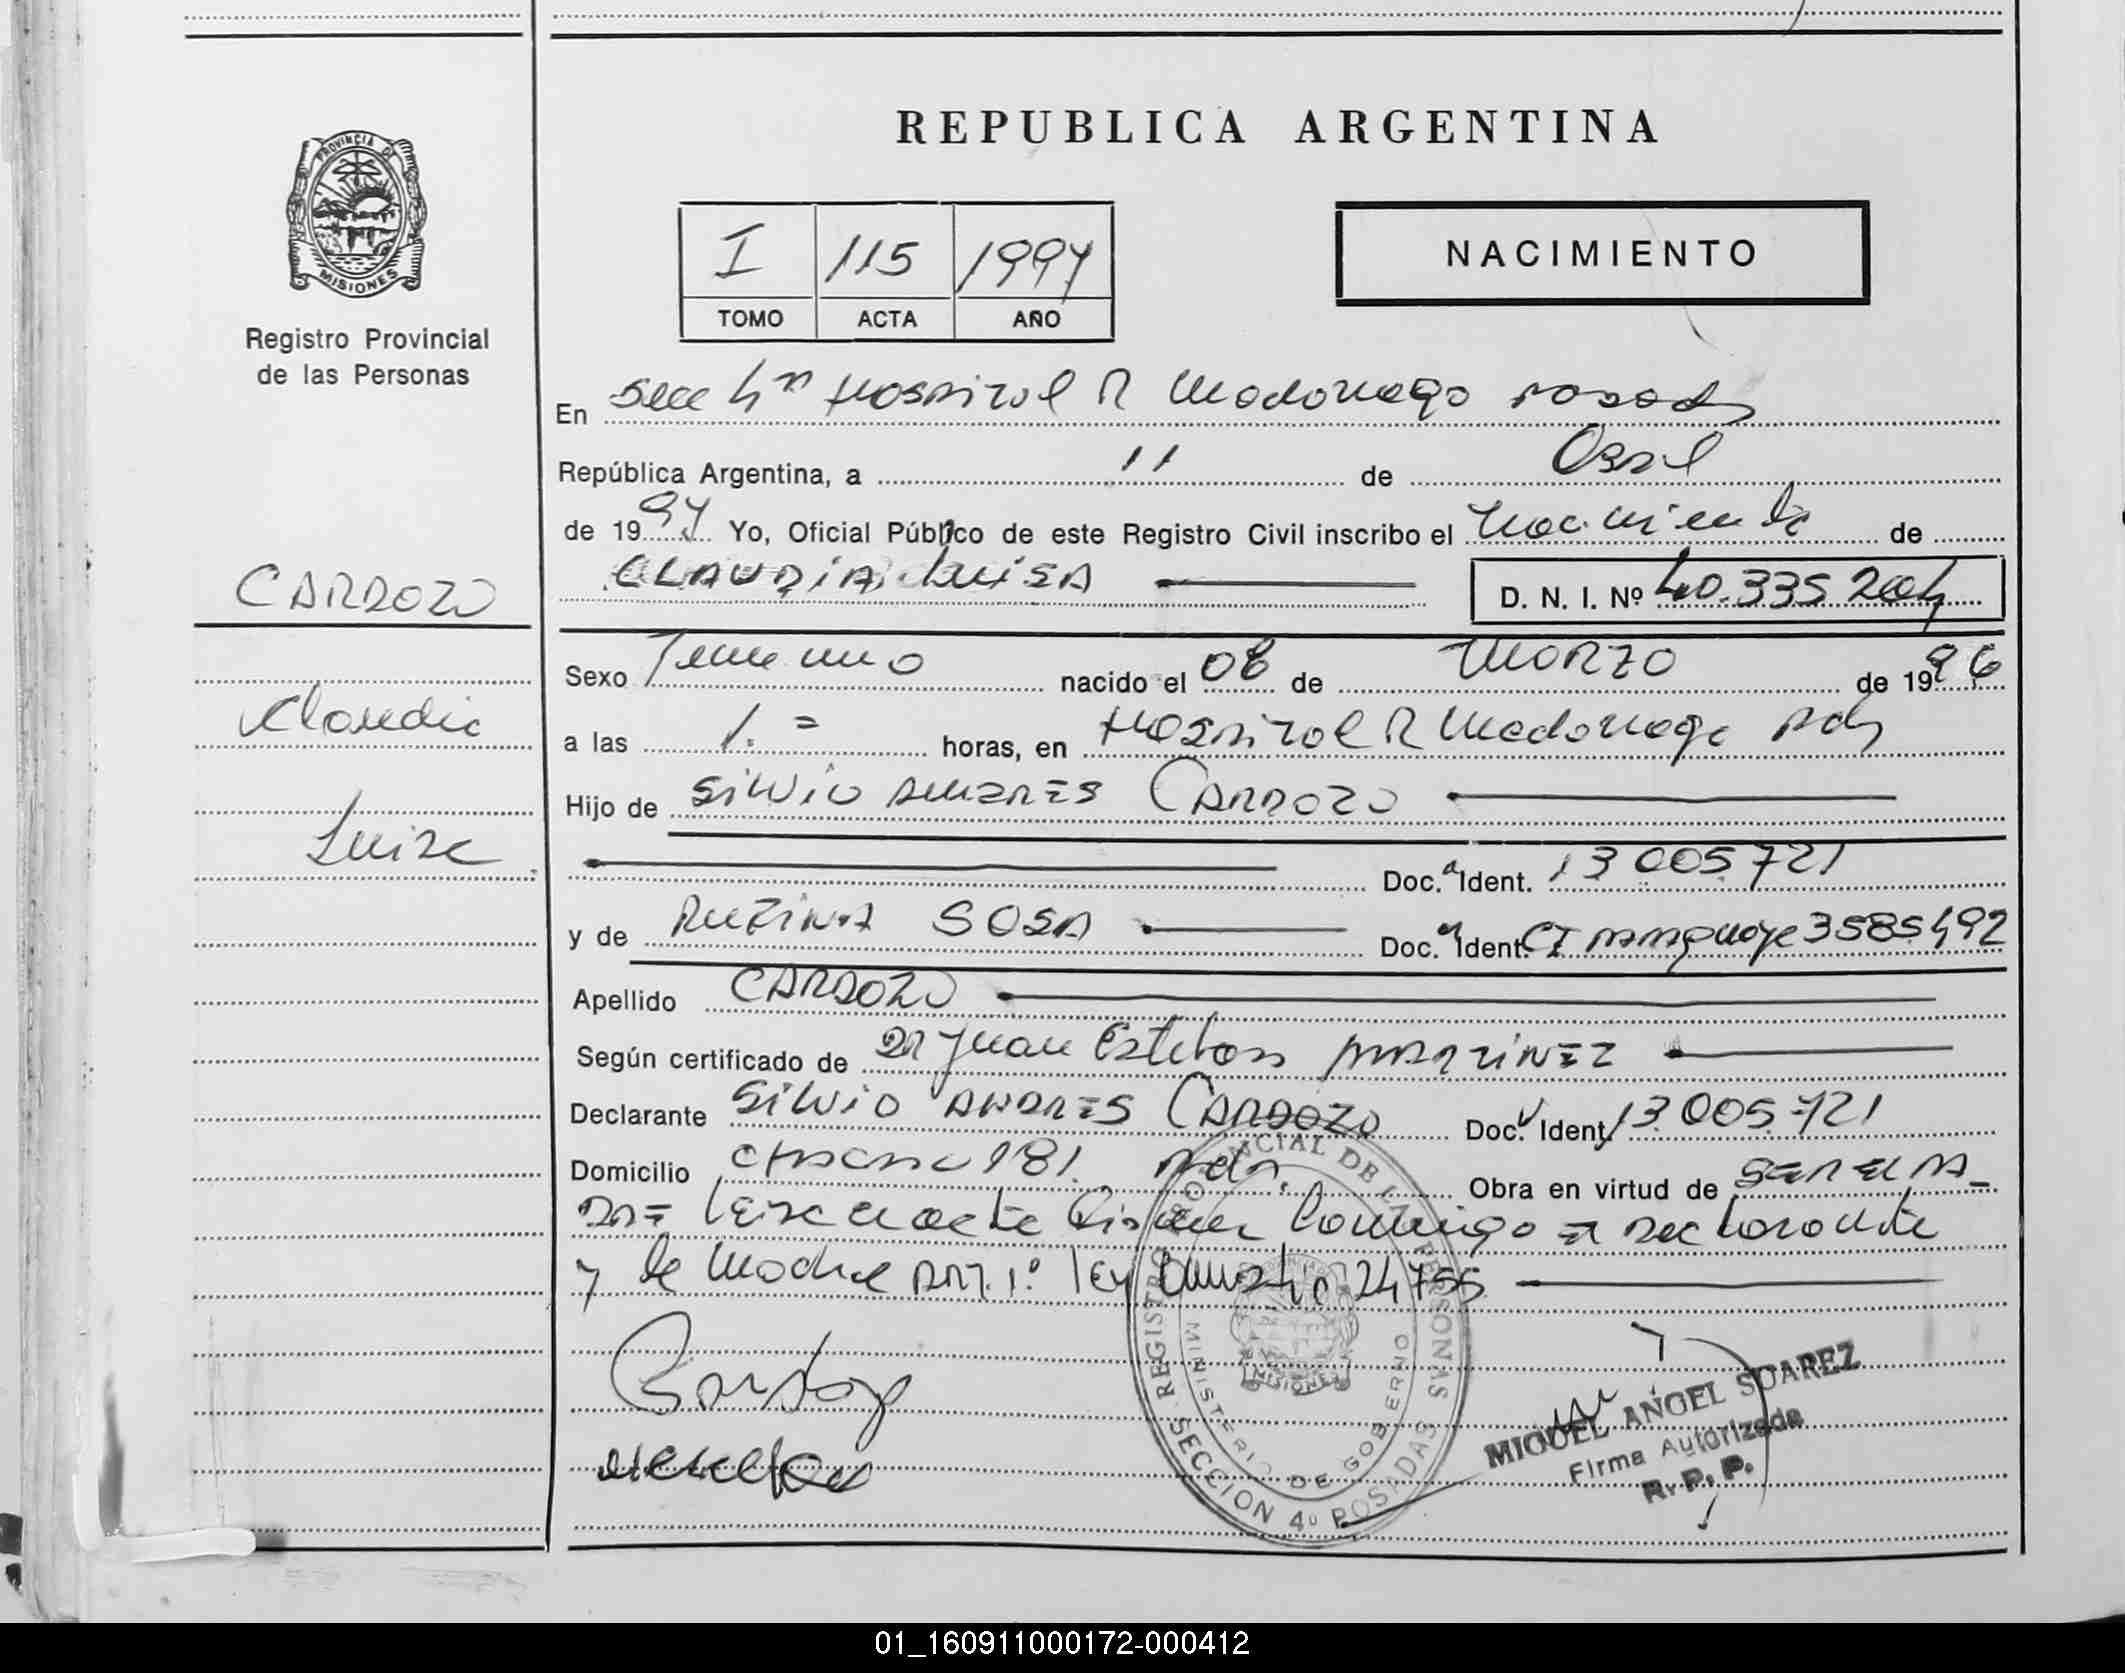 REPUBLICA ARGENTINA
PROVINCIA DE
MISIONES
Registro Provincial
de las Personas
I 115 1997
TOMO ACTA AÑO
NACIMIENTO
En Secc 4ª Hospital R Madariaga Posadas
República Argentina, a 11 de Abril
de 1997 Yo, Oficial Público de este Registro Civil inscribo el nacimiento de
CARDOZO
CLAUDIA LUISA D. N. I. Nº 40.335 204
Sexo Femenino nacido el 08 de MARZO de 1996
Claudia
a las 1. = horas, en Hospital R Madariaga Pds
Hijo de SILVIO ANDRES CARDOZO
Luisa
Doc. Ident. 13 005 721
y de RUFINA SOSA Doc. Ident. CI Paraguaya 3585492
Apellido CARDOZO
Según certificado de DR Juan Esteban MARTINEZ
Declarante SILVIO ANDRES CARDOZO Doc. Ident. 13.005.721
Domicilio 181. Pds. Obra en virtud de
el acta el declarante
y la madre ART. 1º ley 24755
REGISTRO PROVINCIAL DE LAS PERSONAS
MINISTERIO DE GOBIERNO
MISIONES
SECCION 4º POSADAS
MIGUEL ANGEL SUAREZ
Firma Autorizada
R. P. P.
01_160911000172-000412